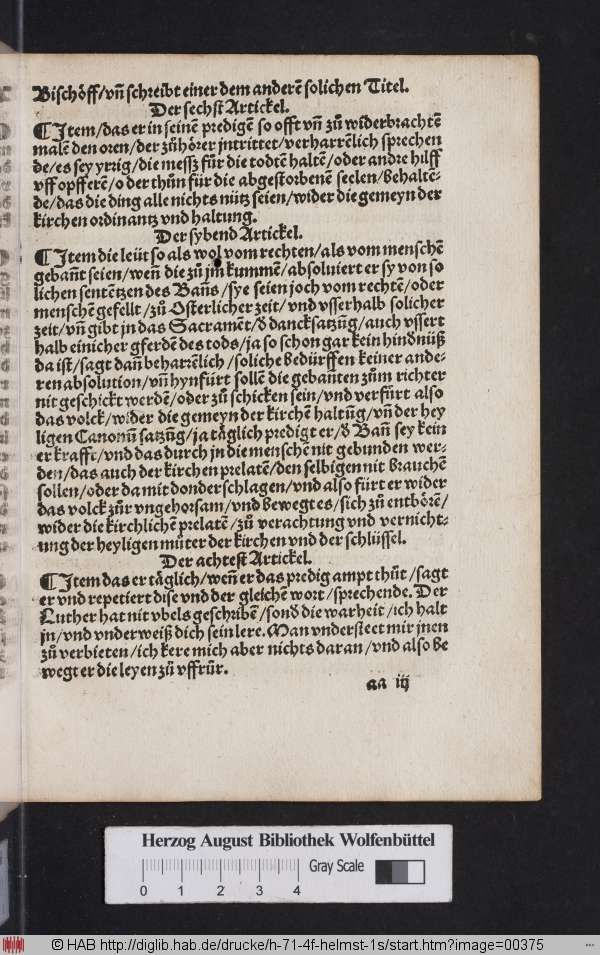 Bischöff/vñ schreibt einer dem anderē solichen Titel.
Der sechst Artickel.
¶Item/das er in seinē predigē so offt vñ zů widerbrachtē
malē den oren/der zůhörer jntrittet/verharrēlich sprechen
de/es sey yrrig/die messz für die todtē haltē/oder andre hilff
vff opfferē/oder thůn für die abgestorbenē seelen/behaltē-
de/das die ding alle nichts nütz seien/wider die gemeyn der
kirchen ordinantz vnd haltung.
Der sybend Artickel.
¶Item die leüt so als wol vom rechten/als vom menschē
gebañt seien/weñ die zů jm kummē/absoluiert er sy von so
lichen sentētzen des Bañs/sye seien joch vom rechtē/oder
menschē gefellt/zů Osterlicher zeit/vnd vsserhalb solicher
zeit/vñ gibt jn das Sacramēt/d dancksatzūg/auch vssert
halb einicher gferdē des tods/ja so schon gar kein hindnüß
da ist/sagt dañ beharrēlich/soliche bedürffen keiner ande-
ren absolution/vñ hynfürt sollē die gebañten zům richter
nit geschickt werdē/oder zů schicken sein/vnd verfürt also
das volck/wider die gemeyn der kirchē haltūg/vñ der hey
ligen Canonū satzūg/ja täglich predigt er/d Bañ sey kein
er krafft/vnd das durch jn die menschē nit gebunden wer-
den/das auch der kirchen prelatē/den selbigen nit brauchē
sollen/oder da mit donderschlagen/vnd also fürt er wider
das volck zůr vngehorsam/vnd bewegt es/sich zů entbörē/
wider die kirchlichē prelatē/zů verachtung vnd vernicht-
ung der heyligen můter der kirchen vnd der schlüssel.
Der achtest Artickel.
¶Item das er täglich/weñ er das predig ampt thůt/sagt
er vnd repetiert dise vnd der gleichē wort/sprechende. Der
Luther hat nit vbels geschribē/sond die warheit/ich halt
jn/vnd vnderweiß dich sein lere. Man vnderstect mir jnen
zů verbieten/ich kere mich aber nichts daran/vnd also be
wegt er die leyen zů vffrůr.
aa iij
Herzog August Bibliothek Wolfenbüttel
Gray Scale
0 1 2 3 4
© HAB http://diglib.hab.de/drucke/h-71-4f-helmst-1s/start.htm?image=00375